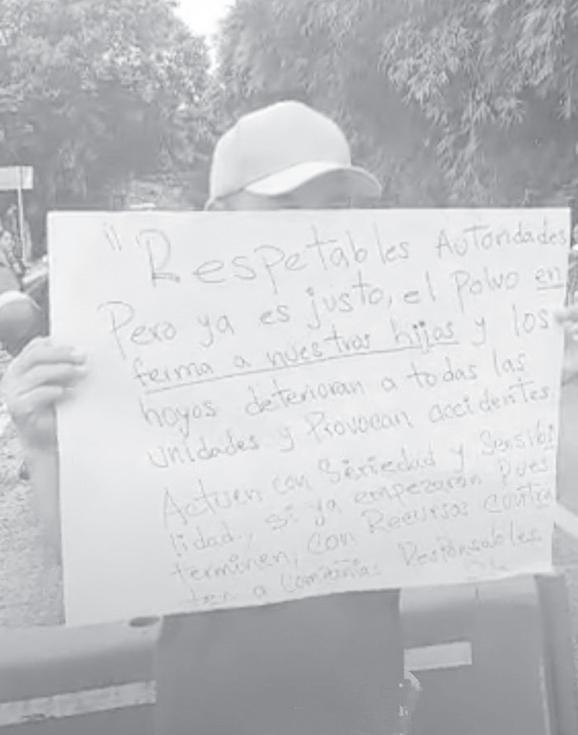 "Respetables Autoridades
Pero ya es justo, el Polvo en
ferma a nuestros hijos y los
hoyos deterioran a todas las
unidades y Provocan accidentes
Actuen con Seriedad y Sensibi
lidad, si ya empezaron Pues
terminen, con Recursos contra
ten a Compañias Responsables